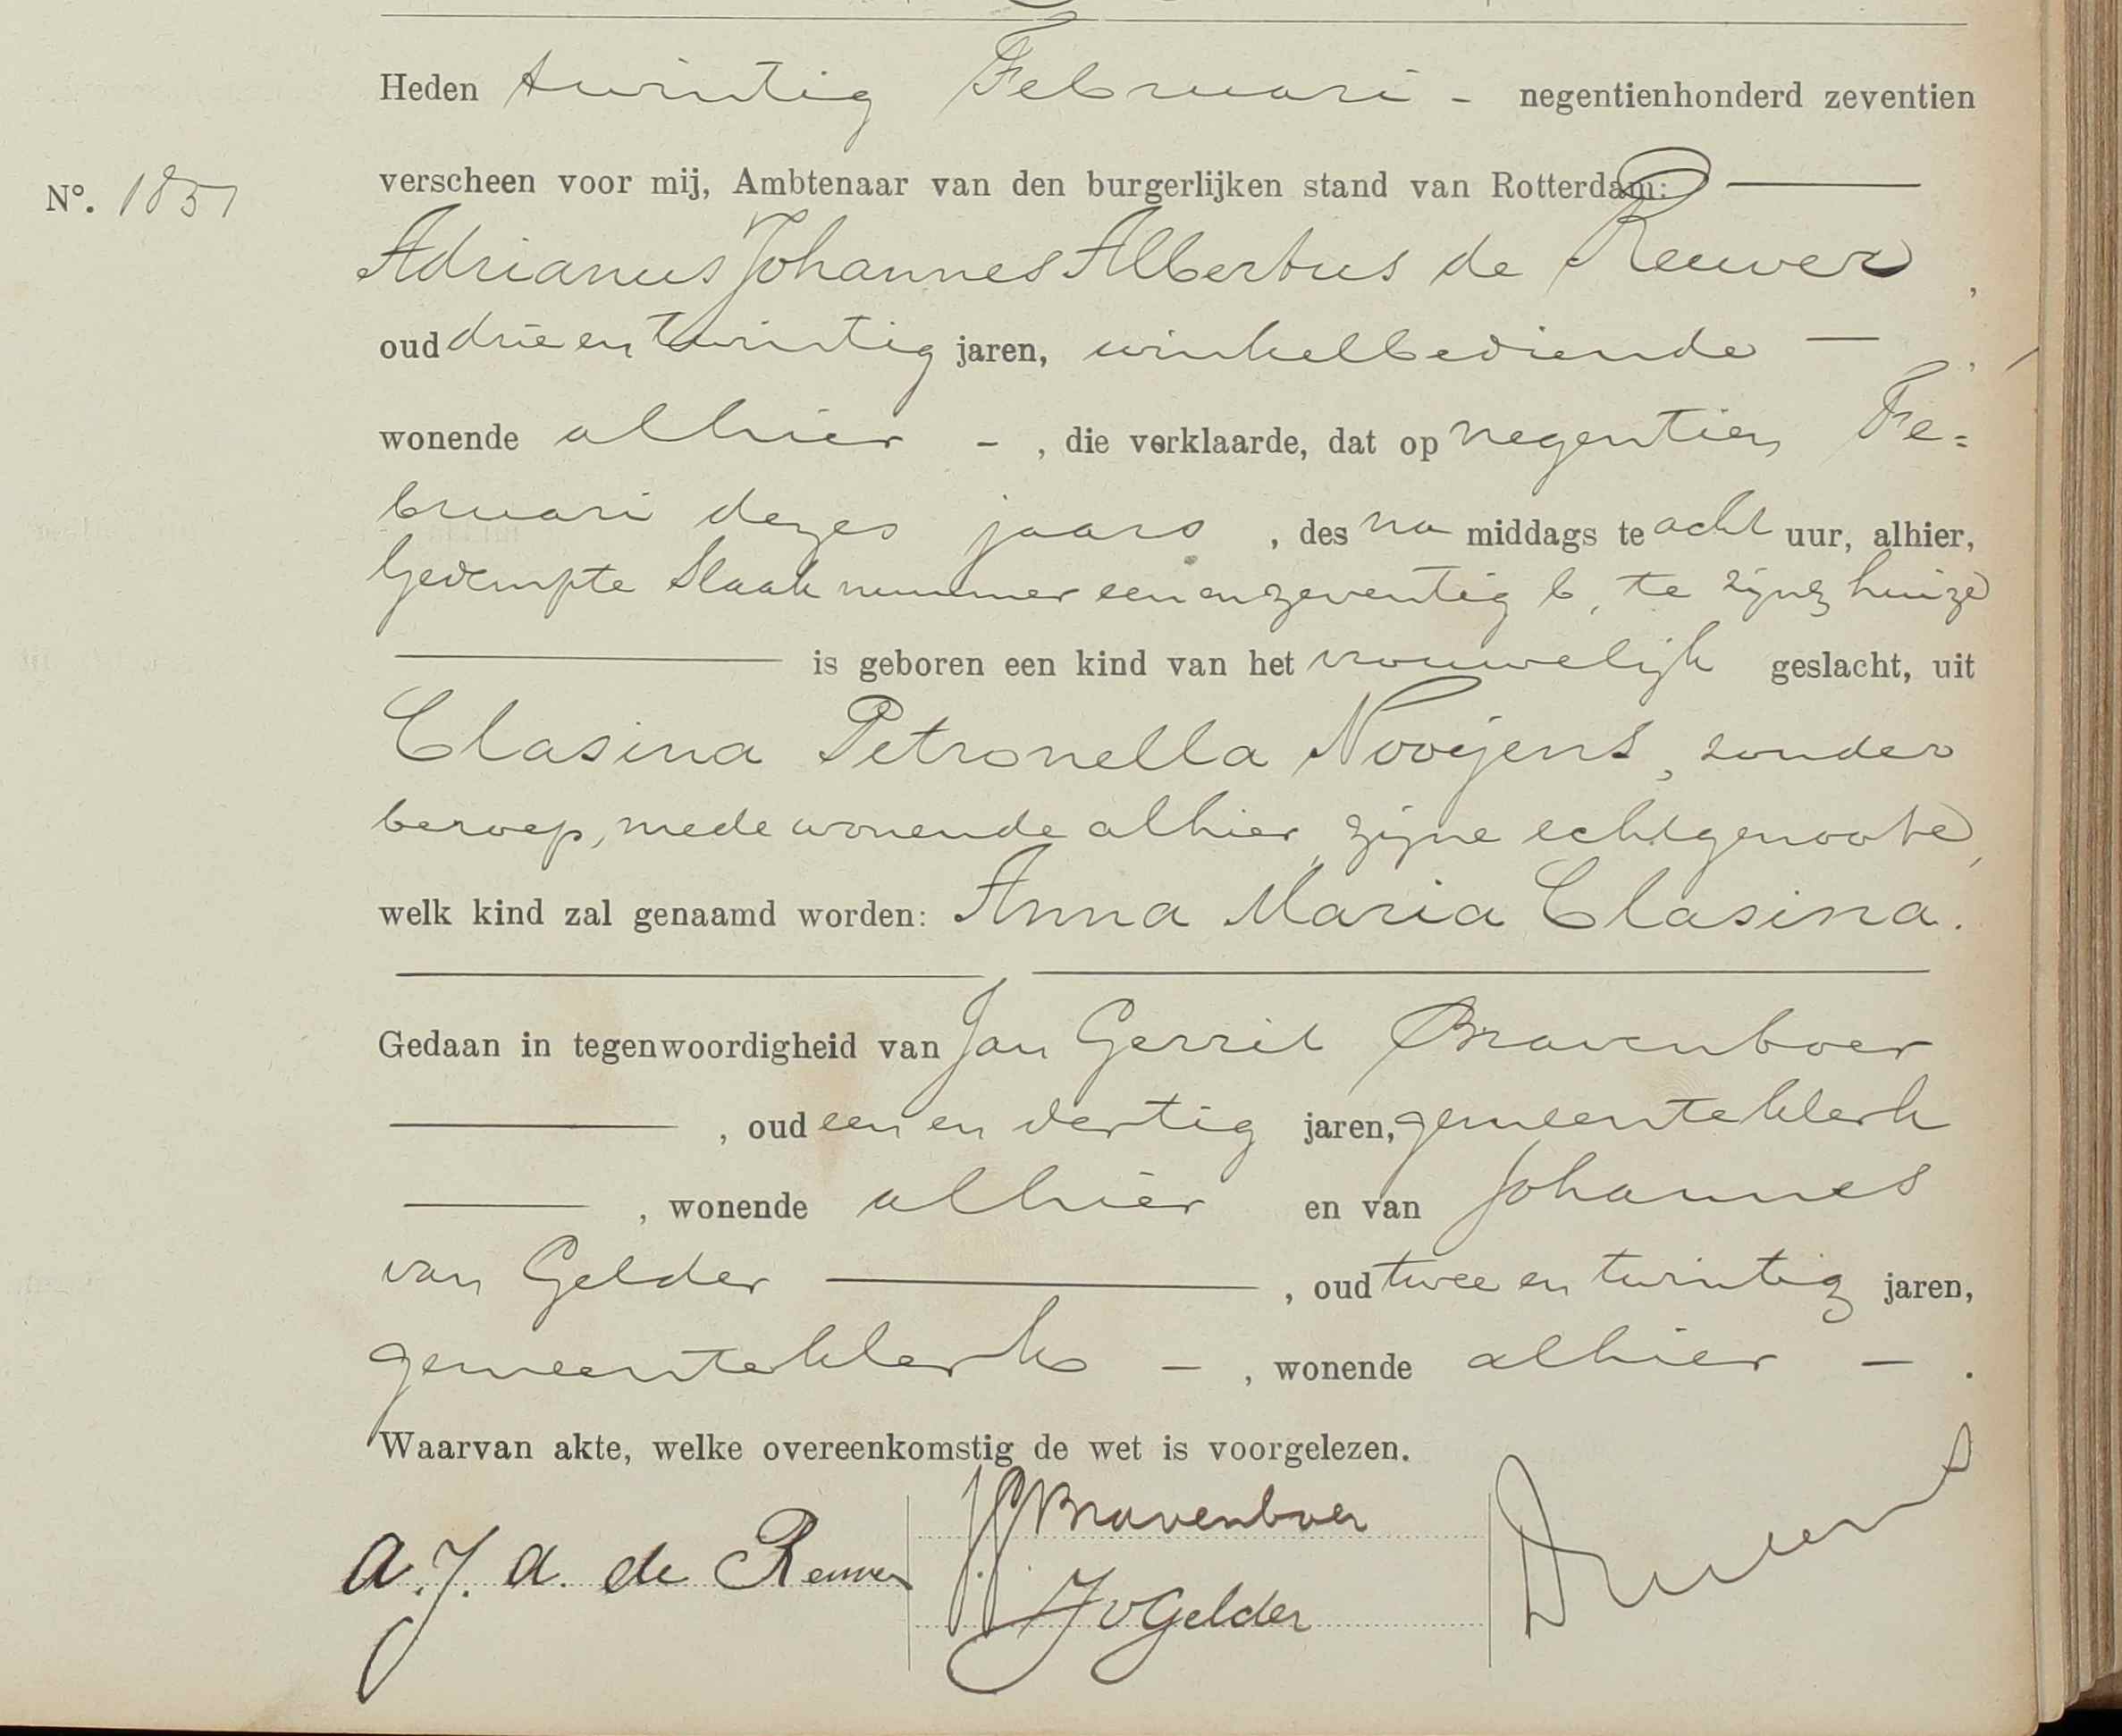 Heden twintig Februari - negentienhonderd zeventien
verscheen voor mij, Ambtenaar van den burgerlijken stand van Rotterdam:
No. 1851
Adrianus Johannes Albertus de Reuver,
oud drie en twintig jaren, winkelbediende —,
wonende alhier - , die verklaarde, dat op negentien Fe=
bruari dezes jaars , des na middags te acht uur, alhier,
Gedempte Slaak nummer een en zeventig b, te zijnen huize
is geboren een kind van het vrouwelijk geslacht, uit
Clasina Petronella Nooijens, zonder
beroep, mede wonende alhier, zijne echtgenoote,
welk kind zal genaamd worden: Anna Maria Clasina.
Gedaan in tegenwoordigheid van Jan Gerrit Bravenboer
, oud een en dertig jaren, gemeenteklerk
, wonende alhier en van Johannes
van Gelder , oud twee en twintig jaren,
gemeenteklerk — , wonende alhier — .
Waarvan akte, welke overeenkomstig de wet is voorgelezen.
JG Bravenboer
A. J. A. de Reuver
JvGelder